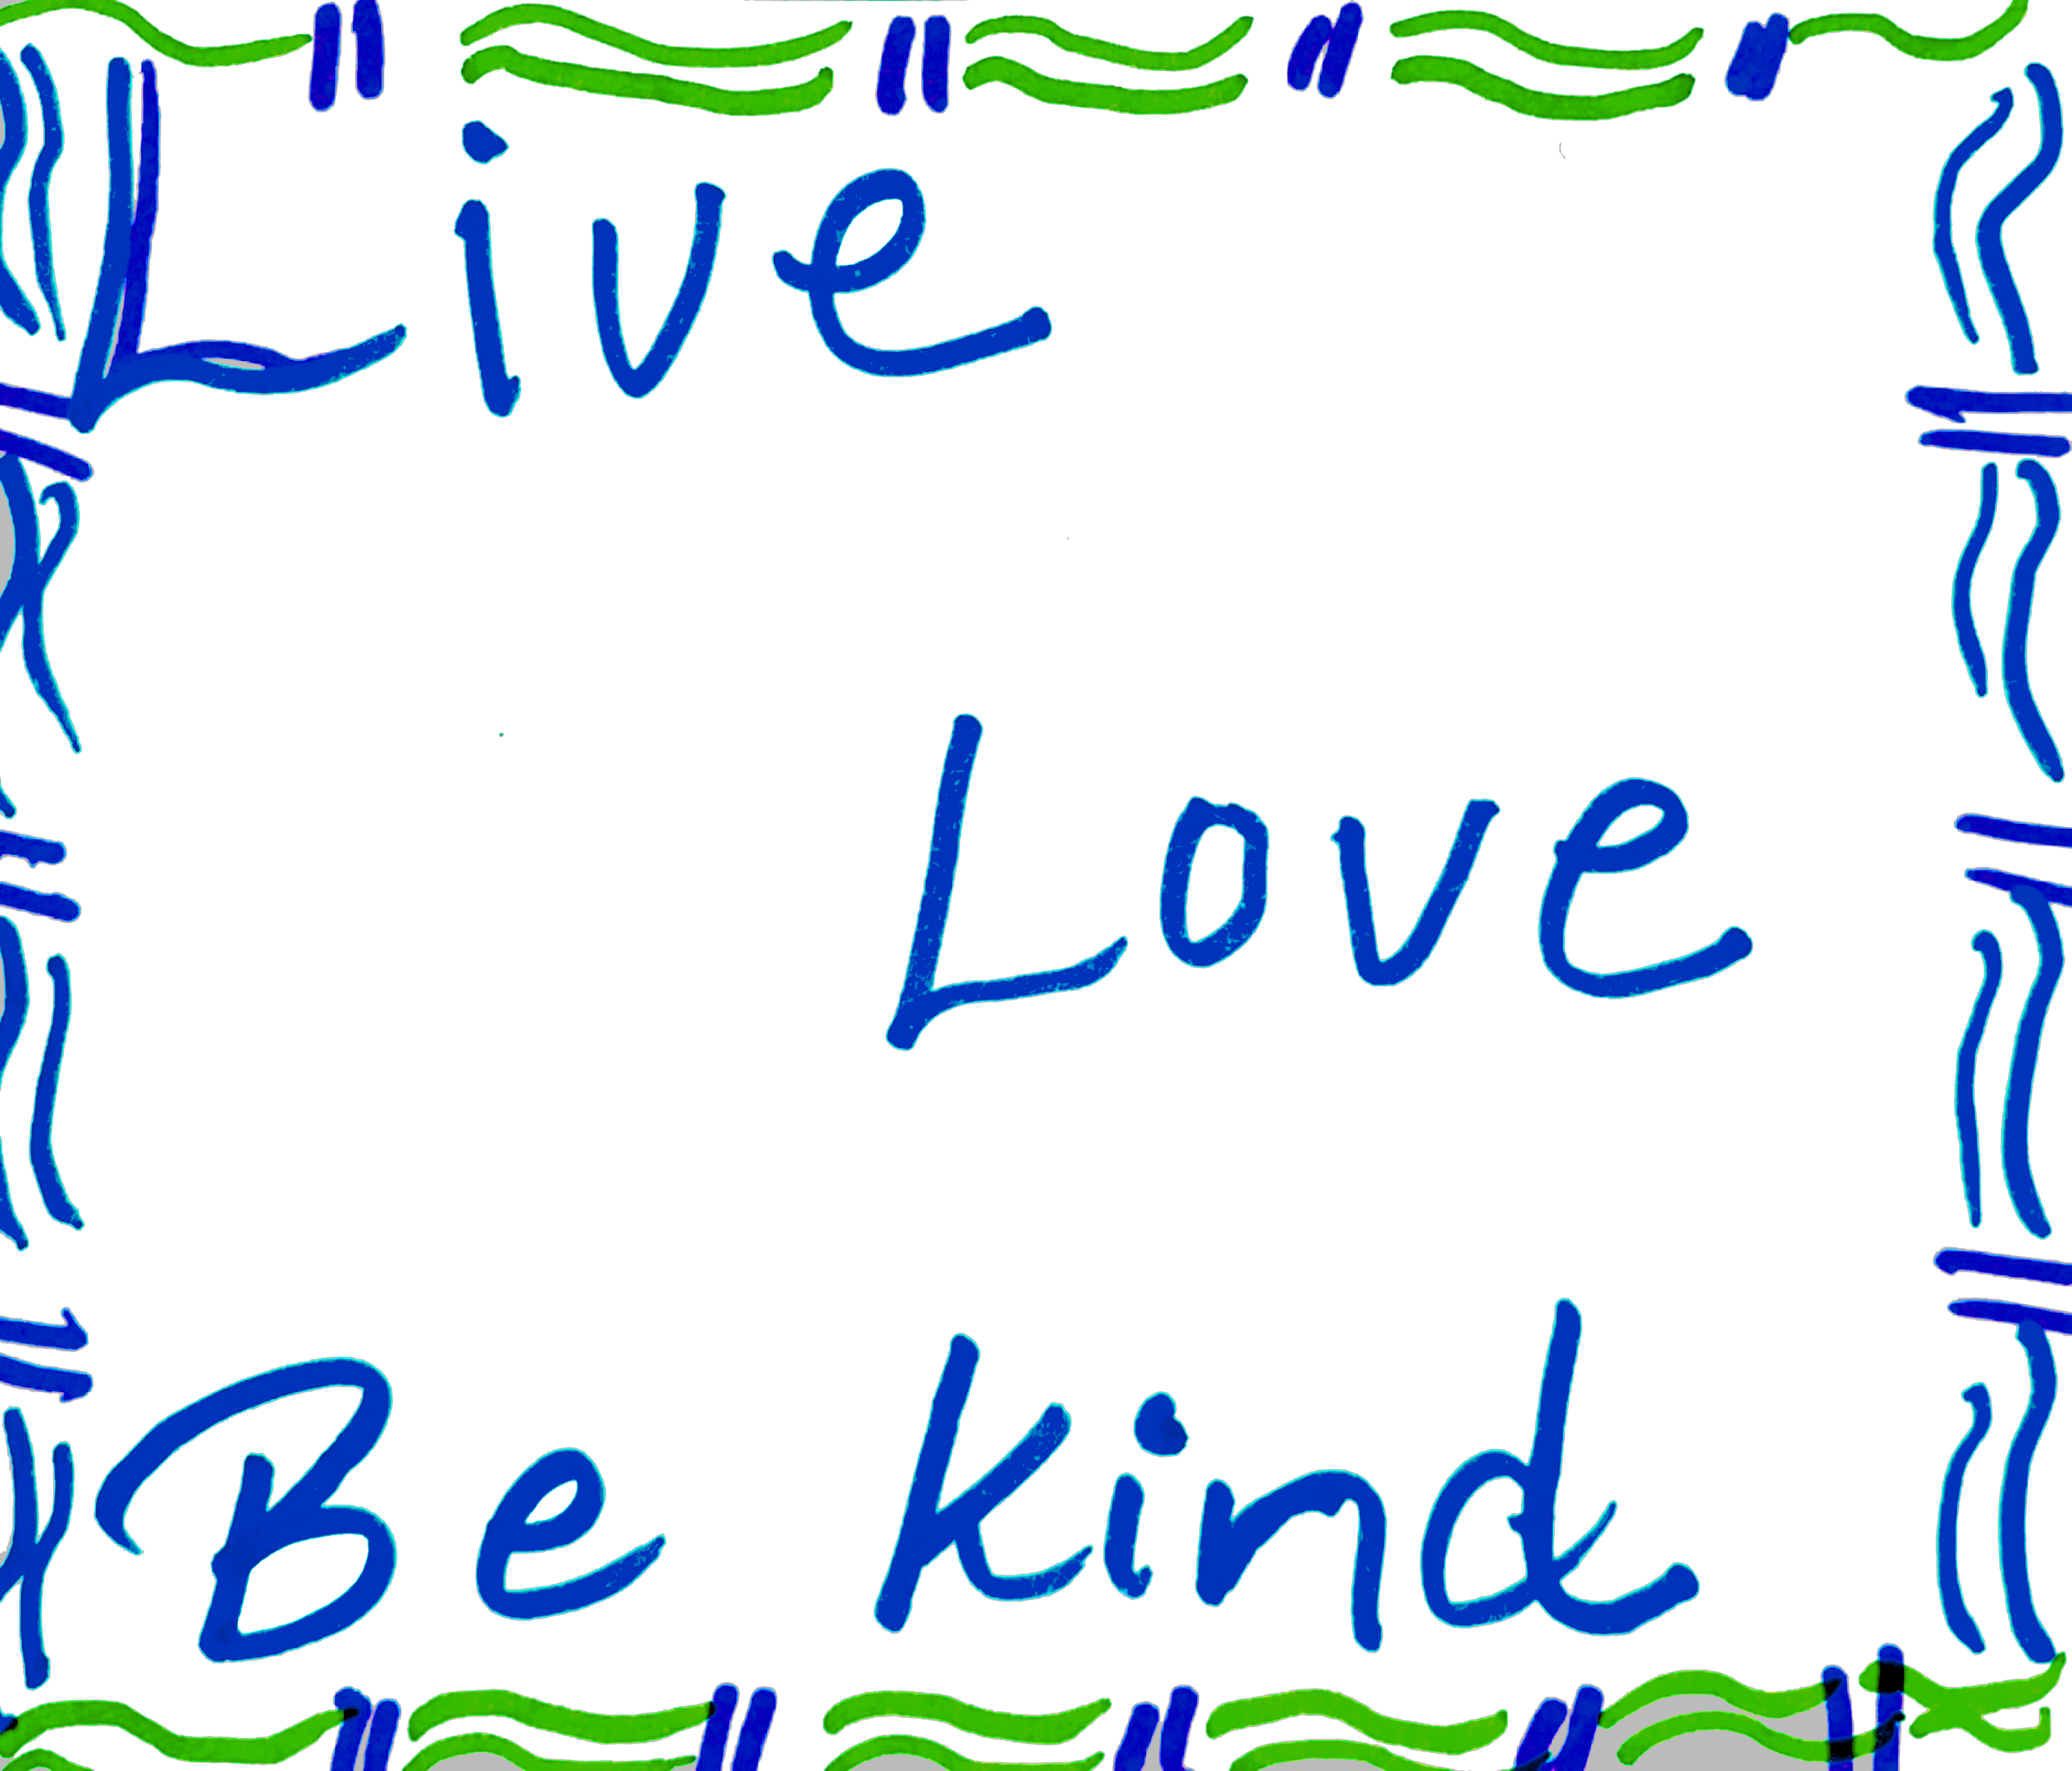 Live
Love
Be Kind